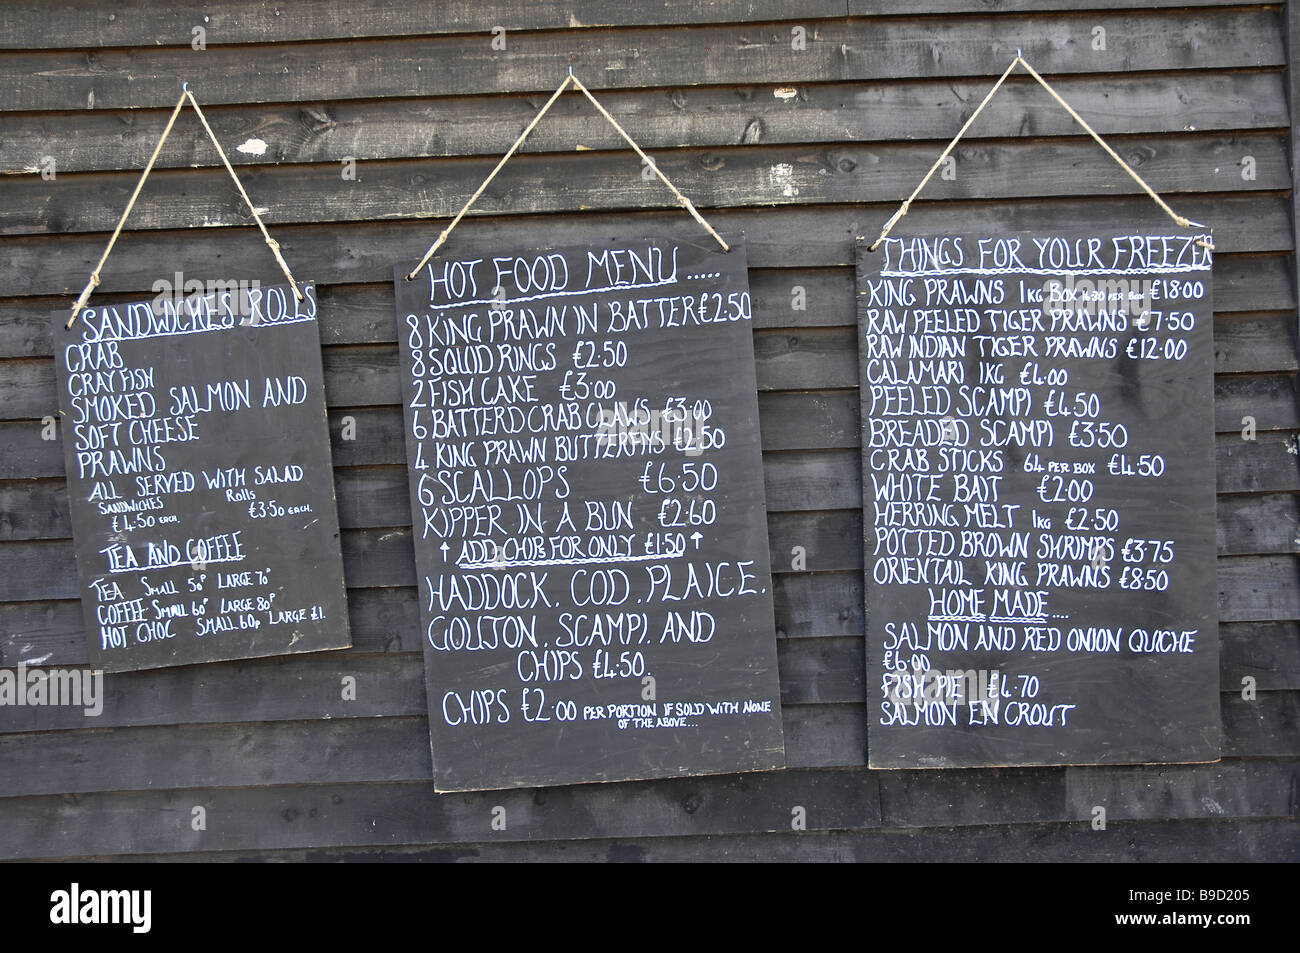 SANDWICHES, ROLLS
CRAB
CRAYFISH
SMOKED SALMON AND
SOFT CHEESE
PRAWNS
ALL SERVED WITH SALAD
SANDWICHES Rolls
£4.50 EACH. £3.50 EACH.
TEA AND COFFEE
TEA SMALL 50P LARGE 70P
COFFEE SMALL 60P LARGE 80P
HOT CHOC SMALL 60p LARGE £1.
HOT FOOD MENU .....
8 KING PRAWN IN BATTER £2.50
8 SQUID RINGS £2.50
2 FISH CAKE £3.00
6 BATTERD CRAB CLAWS £3.00
4 KING PRAWN BUTTERFIYS £2.50
6 SCALLOPS £6.50
KIPPER IN A BUN £2.60
↑ ADD CHIPS FOR ONLY £1.50 ↑
HADDOCK, COD, PLAICE,
GOUJON, SCAMPI, AND
CHIPS £4.50.
CHIPS £2.00 PER PORTION IF SOLD WITH NONE
OF THE ABOVE...
THINGS FOR YOUR FREEZER
KING PRAWNS 1KG BOX 16-30 PER BOX £18.00
RAW PEELED TIGER PRAWNS £7.50
RAW INDIAN TIGER PRAWNS £12.00
CALAMARI 1KG £4.00
PEELED SCAMPI £4.50
BREADED SCAMPI £3.50
CRAB STICKS 64 PER BOX £4.50
WHITE BAIT £2.00
HERRING MELT 1KG £2.50
POTTED BROWN SHRIMPS £3.75
ORIENTAIL KING PRAWNS £8.50
HOME MADE ....
SALMON AND RED ONION QUICHE
£6.00
FISH PIE £4.70
SALMON EN CROUT
alamy
Image ID: B9D205
www.alamy.com